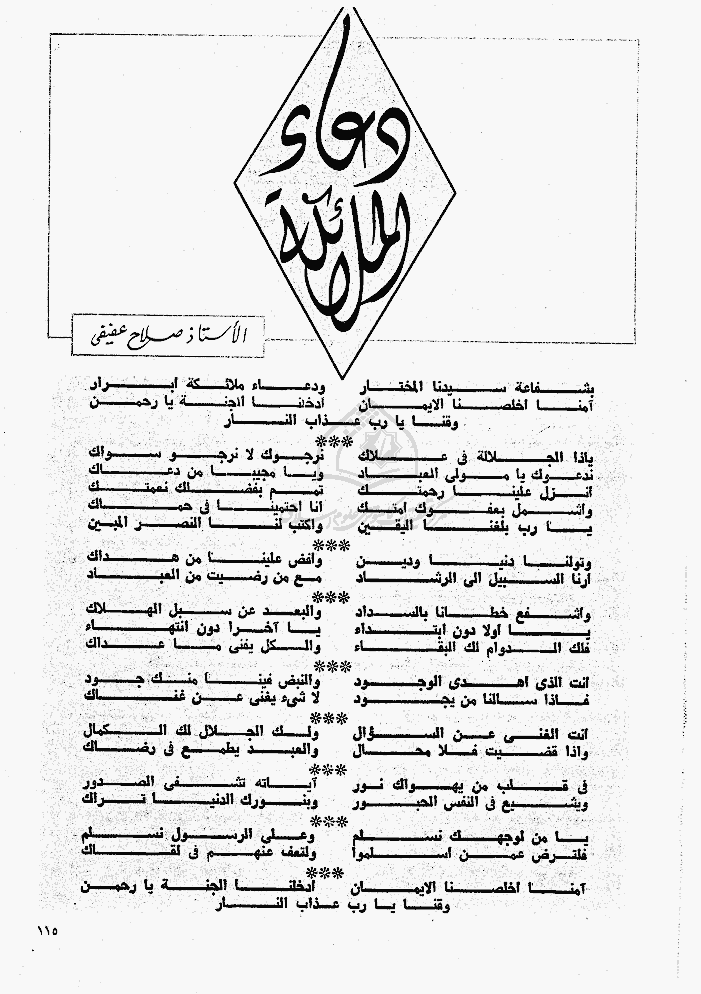 دعاء
الملائكة
الأستاذ صلاح عفيفى
بشفاعة سيدنا المختار ودعاء ملائكة أبرار
آمنا أخلصنا الايمان ادخلنا الجنة يا رحمن
وقنا يا رب عذاب النار
***
ياذا الجلالة فى علاك نرجوك لا نرجو سواك
ندعوك يا مولى العباد ويا مجيبا من دعاك
انزل علينا رحمتك تمم بفضلك نعمتك
واشمل بعفوك امتك انا احتمينا فى حماك
يا رب بلغنا اليقين واكتب لنا النصر المبين
***
وتولنا دنيا ودين وأفض علينا من هداك
ارنا السبيل الى الرشاد مع من رضيت من العباد
***
واشفع خطانا بالسداد والبعد عن سبل الهلاك
يا أولا دون ابتداء يا آخرا دون انتهاء
فلك الدوام لك البقاء والكل يفنى ما عداك
***
انت الذى اهدى الوجود والنبض فينا منك جود
فاذا سالنا من يجود لا شىء يغنى عن غناك
***
انت الغنى عن السؤال ولك الجلال لك الكمال
واذا قضيت فلا محال والعبد يطمع فى رضاك
***
فى قلب من يهواك نور آياته تشفى الصدور
ويشيع فى النفس الحبور وبنورك الدنيا تراك
***
يا من لوجهك نسلم وعلى الرسول نسلم
فلترض عمن اسلموا ولتعف عنهم فى لقاك
***
آمنا اخلصنا الايمان ادخلنا الجنة يا رحمن
وقنا يا رب عذاب النار
١١٥